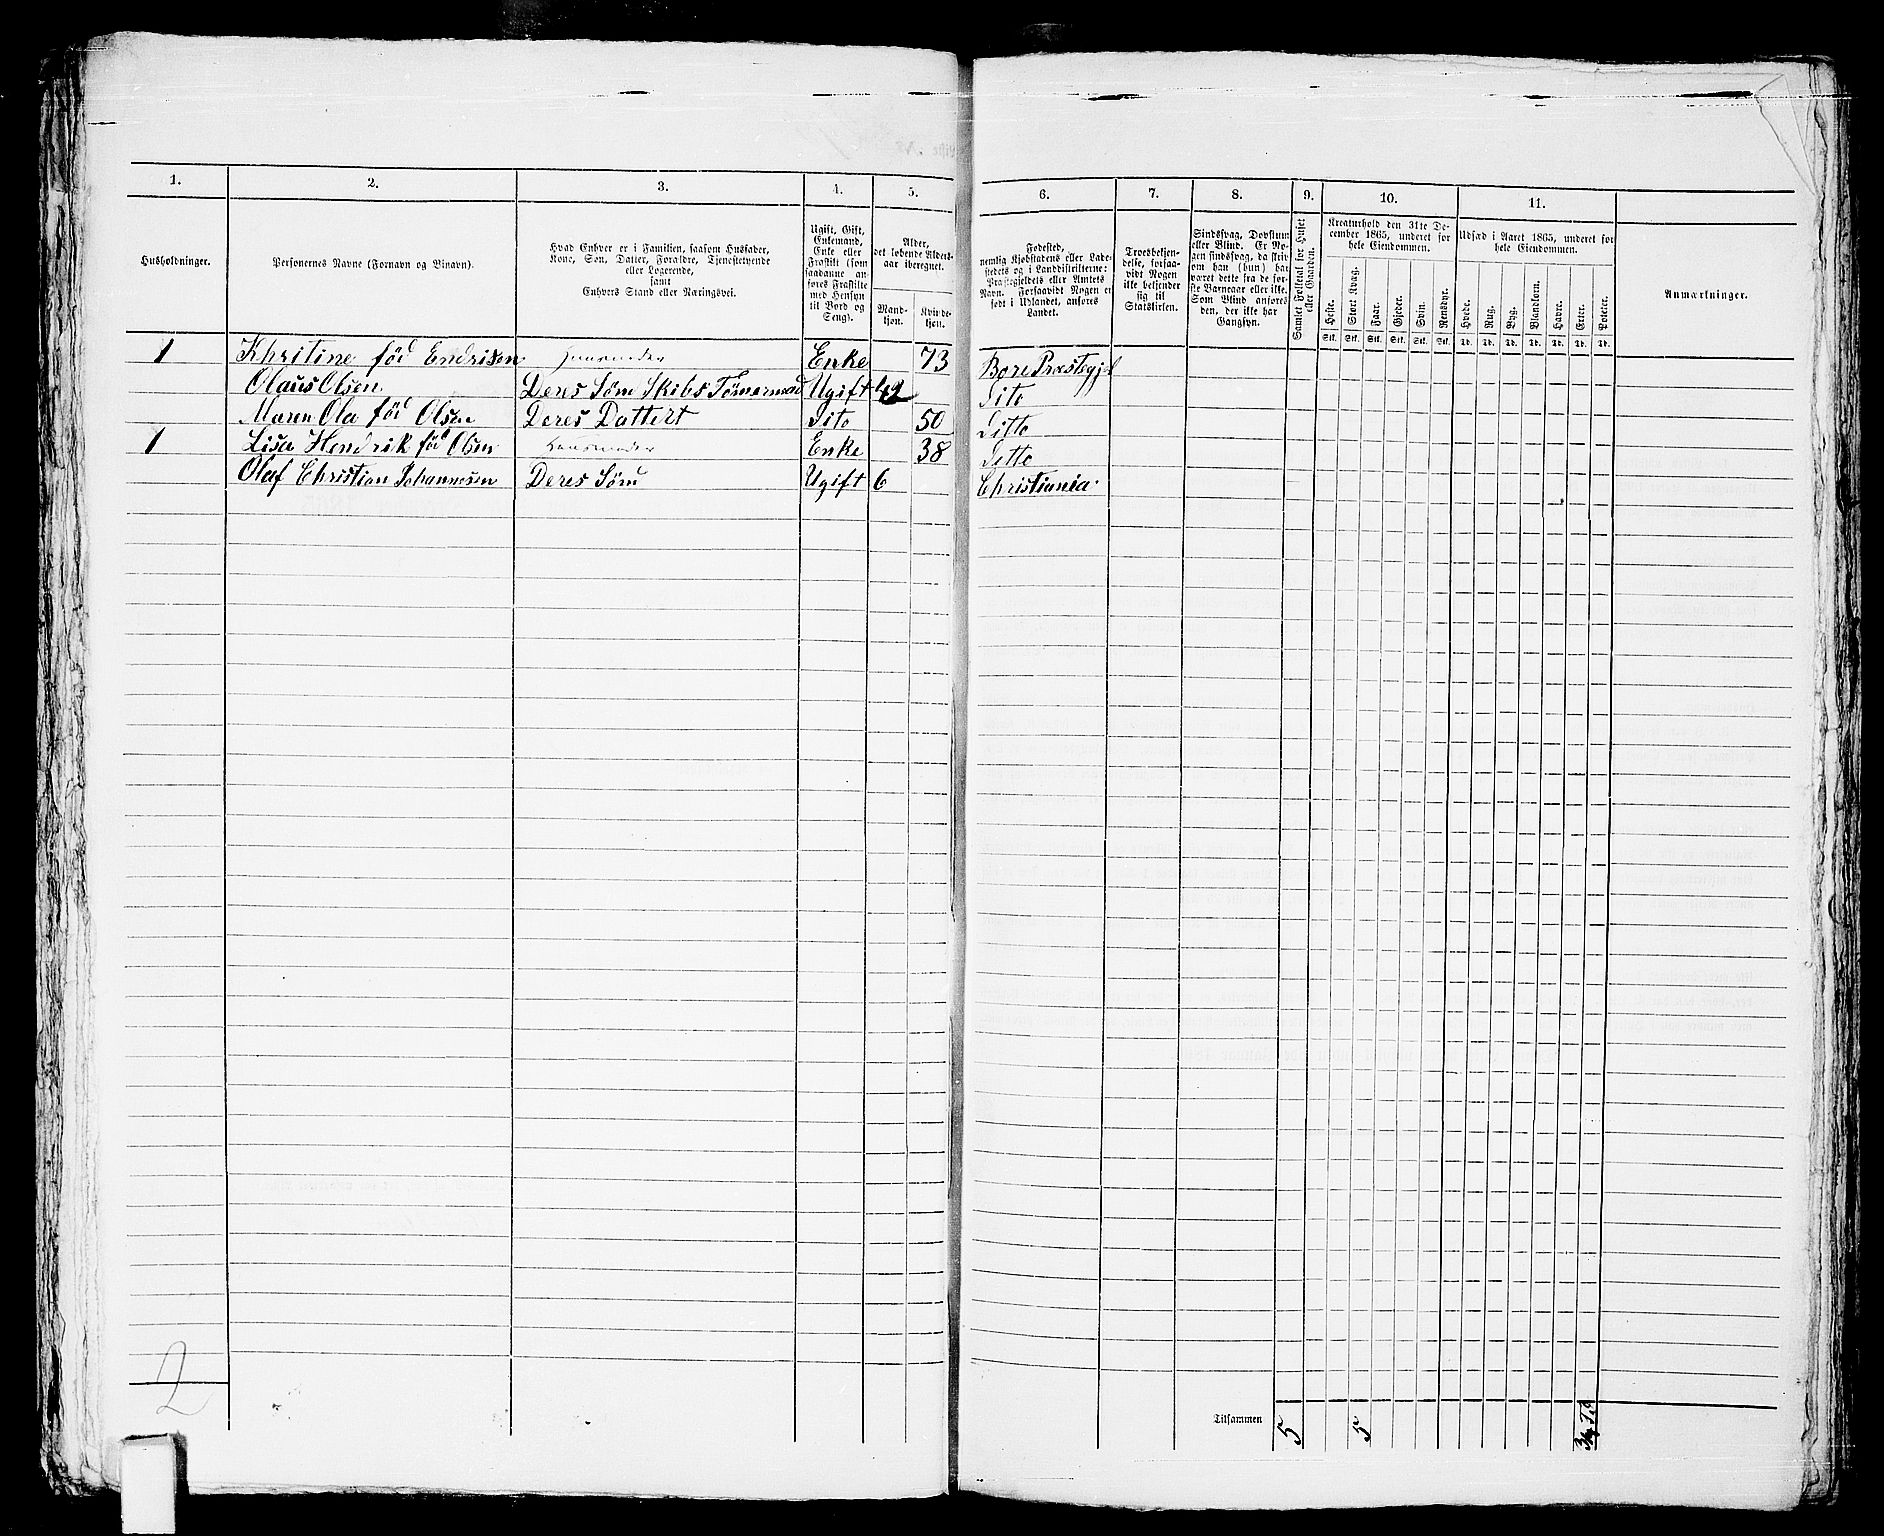 1. 2. 3. 4. 5. 6. 7. 8. 9. 10. 11.
Husholdninger.
Personernes Navne (Fornavn og Binavn).
Hvad Enhver er i Familien, saasom Husfader,
Kone, Søn, Datter, Forældre, Tjenestetyende
eller Logerende,
samt
Enhvers Stand eller Næringsvei.
Ugift, Gift,
Enkemand,
Enke eller
Fraskilt (som
saadanne an-
føres Fraskilte
med Hensyn
til Bord og
Seng).
Alder,
det løbende Alders-
aar iberegnet.
Mand-
kjøn.
Kvinde-
kjøn.
Fødested,
nemlig Kjøbstadens eller Lade-
stedets og i Landdistrikterne:
Præstegjeldets eller Amtets
Navn. Forsaavidt Nogen er
født i Udlandet, anføres
Landet.
Troesbekjen-
delse, forsaa-
vidt Nogen
ikke bekjender
sig til
Statskirken.
Sindssvag, Døvstum
eller Blind. Er No-
gen sindssvag, da skriv
om han (hun) har
været dette fra de før-
ste Barneaar eller ikke.
Som Blind anføres
den, der ikke har
Gangsyn.
Samlet Folketal for Huset
eller Gaarden.
Kreaturhold den 31te De-
cember 1865, underet for
hele Eiendommen.
Heste. Stort Kvæg. Faar. Gjeder. Svin. Rensdyr.
Stk. Stk. Stk. Stk. Stk. Stk.
Udsæd i Aaret 1865, underet for
hele Eiendommen.
Hvede. Rug. Byg. Blandkorn. Havre. Erter. Poteter.
Td. Td. Td. Td. Td. Td. Td.
Anmærkninger.
1 Khritine fød Endrisen Enke 73 Bore Præstegjel
Olaus Olsen Deres Søm Skibs Tømermad Ugift 42 Dito
Maren Ola fød Olsen Deres Dattert Dito 50 Ditto
1 Lisa Hendrik fød Olsen Enke 38 Ditto
Olaf Christian Johannesen Deres Søm Ugift 6 Christiania
2
Tilsammen 5 5